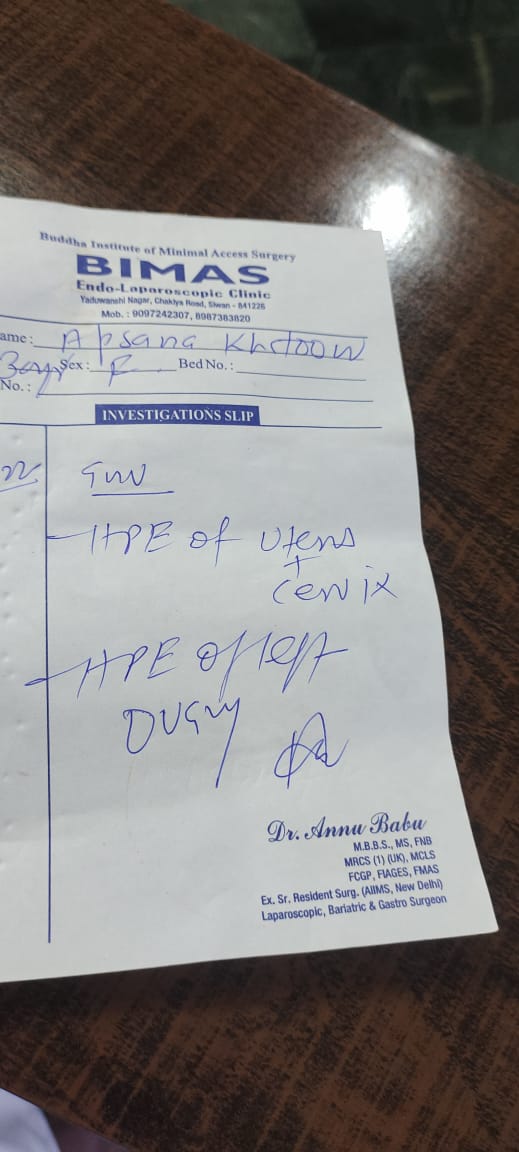 Buddha Institute of Minimal Access Surgery
BIMAS
Endo-Laparoscopic Clinic
Yaduwanshi Nagar, Chakiya Road, Siwan - 841226
Mob. : 9097242307, 8987383820
ame: Apsana Khatoon
Sex: F Bed No.:
No.:
INVESTIGATIONS SLIP
HPE of Uterus
+
Cervix
HPE of left
Ovary
Dr. Annu Babu
M.B.B.S., MS, FNB
MRCS (1) (UK), MCLS
FCGP, FIAGES, FMAS
Ex. Sr. Resident Surg. (AIIMS, New Delhi)
Laparoscopic, Bariatric & Gastro Surgeon